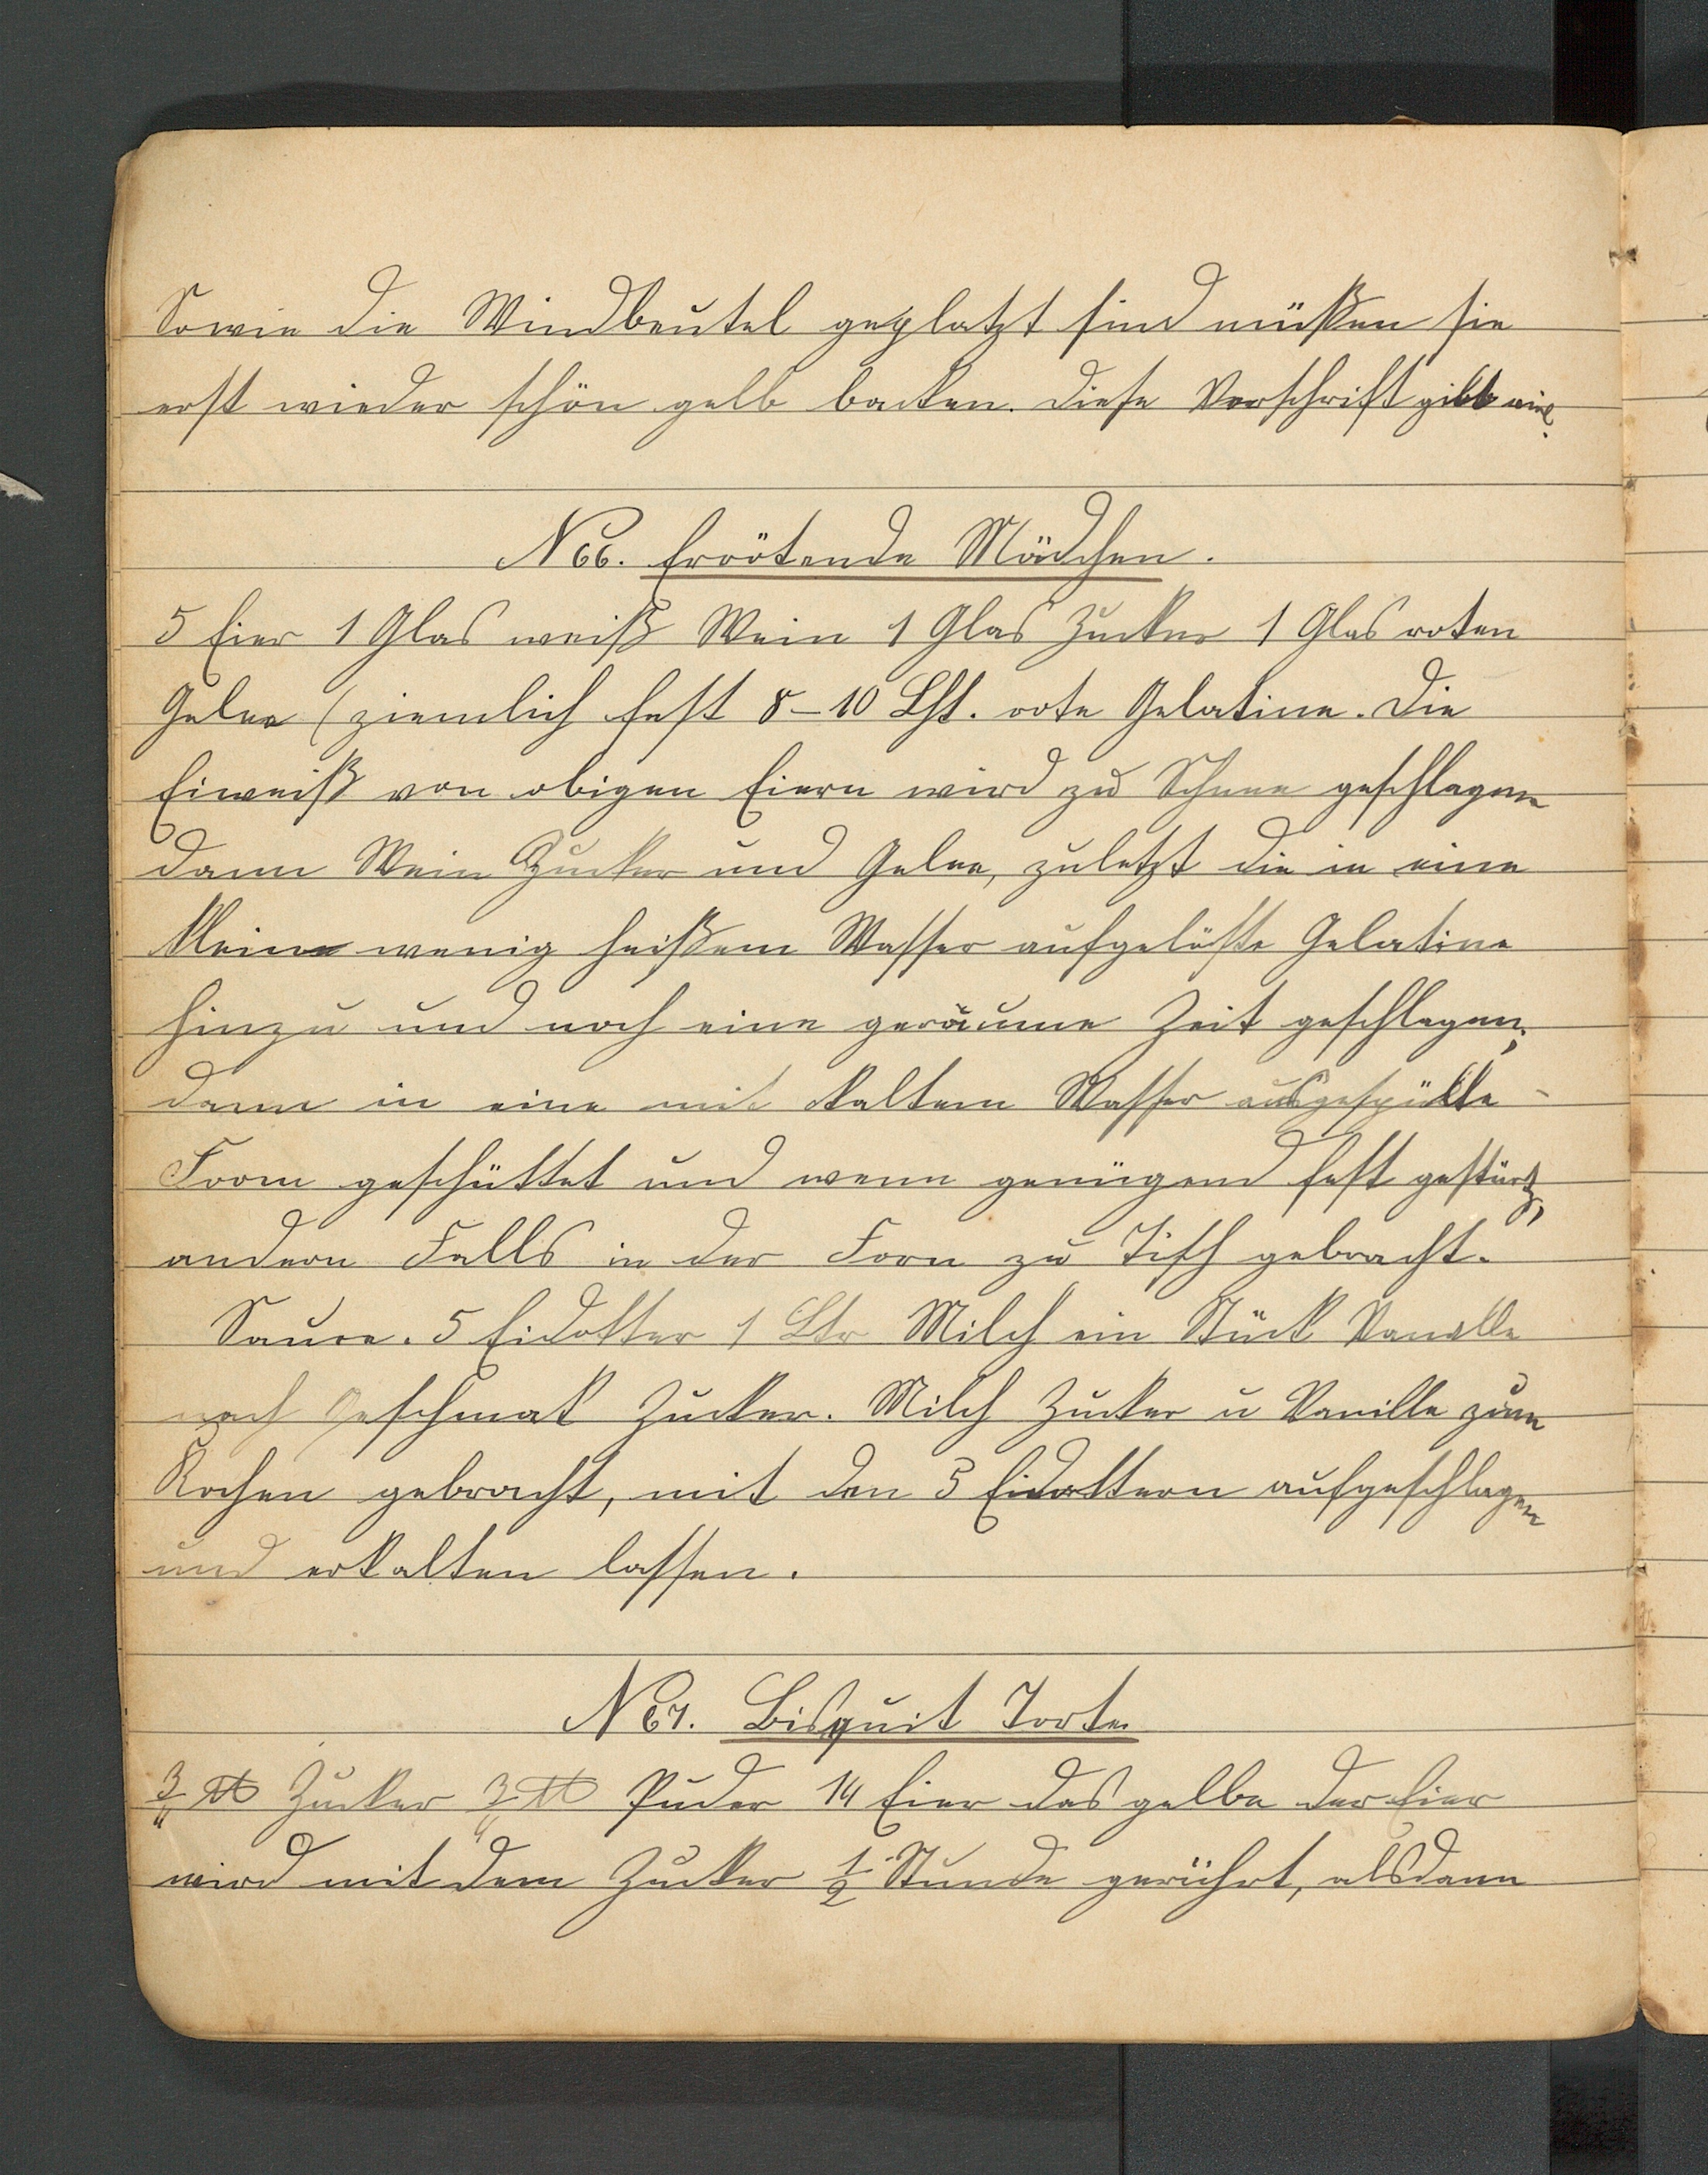 Sowie die Windbeutel geplatzt sind müßen sie
erst wieder schön gelb backen. Diese Vorschrift gibt viel.
N 66. Errötende Mädchen.
5 Eier 1 Glas weiß Wein 1 Glas Zucker 1 Glas roten
Gelee (ziemlich fest 8-10 Blt. rote Gelatine. Die
Eiweiß von obigen Eiern wird zu Schnee geschlagen
dann Wein Zucker und Gelee, zuletzt die in eine
kleine wenig heißem Wasser aufgelößte Gelatine
hinzu und noch eine geräume Zeit geschlagen;
dann in eine mit kaltem Wasser ausgespülte
Form geschüttet und wenn genügend fest gestürtz,
andern Falls in der Form zu Tisch gebracht.
Sauce. 5 Eidotter 1 Ltr Milch ein Stück Vanille
nach Geschmak Zucker. Milch Zucker u Vanille zum
Kochen gebracht, mit den 5 Eidottern aufgeschlagen
und erkalten lassen.
N 67. Bisquit Torte.
3/4 ℔ Zucker 3/4 ℔ Puder 14 Eier das gelbe der Eier
wird mit dem Zucker 1/2 Stunde gerührt, alsdann